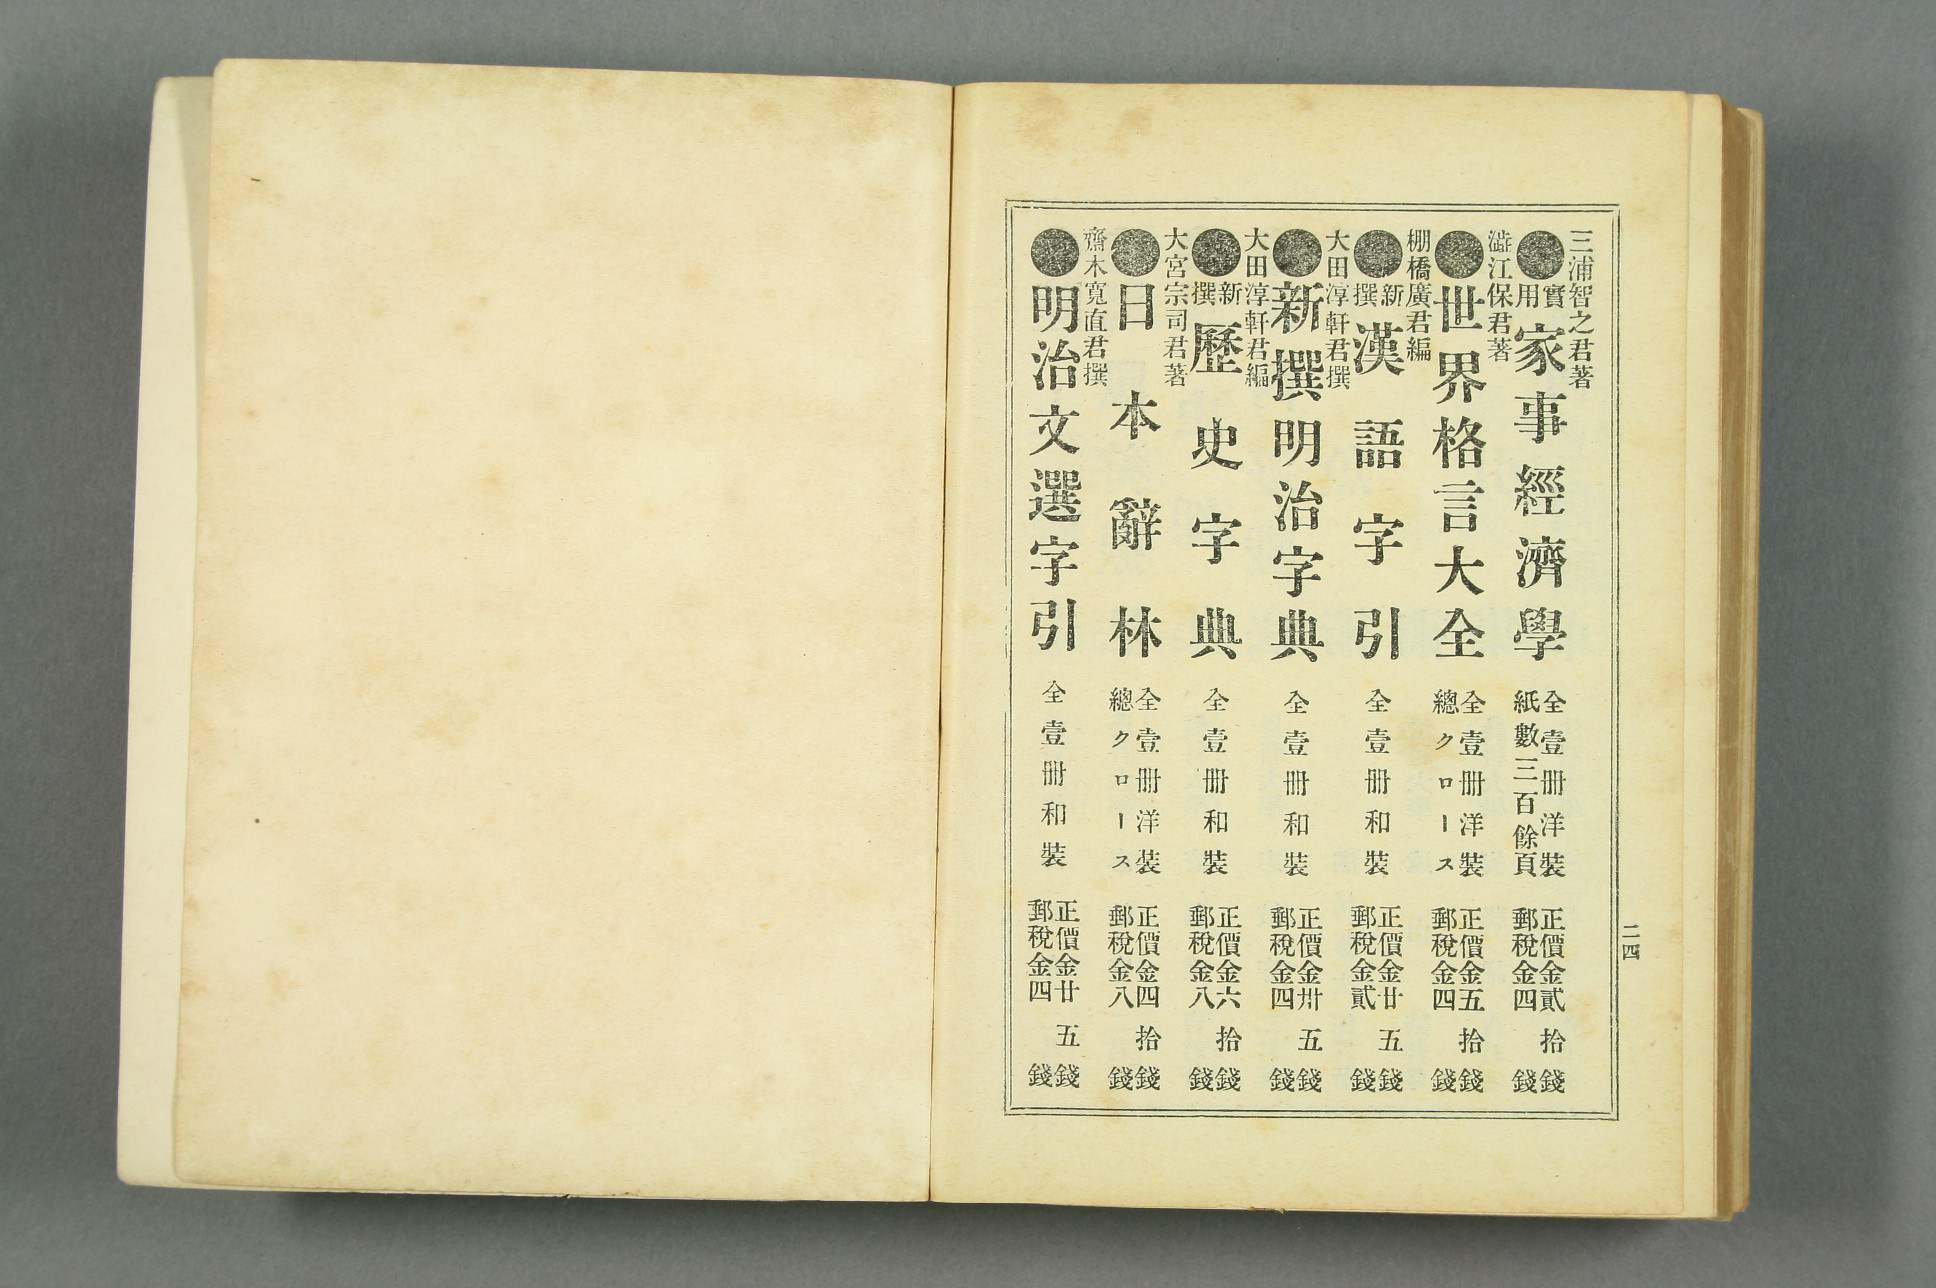 三浦智之君著
●實用家事經濟學 全壹冊洋裝 紙數三百餘頁 正價金貳拾錢 郵稅金四錢
澁江保君著
●世界格言大全 全壹冊洋裝 總クロース 正價金五拾錢 郵稅金四錢
棚橋廣君編
●新撰漢語字引 全壹冊和裝 正價金廿五錢 郵稅金貳錢
大田淳軒君撰
●新撰明治字典 全壹冊和裝 正價金卅五錢 郵稅金四錢
大田淳軒君編
●新撰歷史字典 全壹冊和裝 正價金六拾錢 郵稅金八錢
大宮宗司君著
●日本辭林 全壹冊洋裝 總クロース 正價金四拾錢 郵稅金八錢
齋木寬直君撰
●明治文選字引 全壹冊和裝 正價金廿五錢 郵稅金四錢
二四